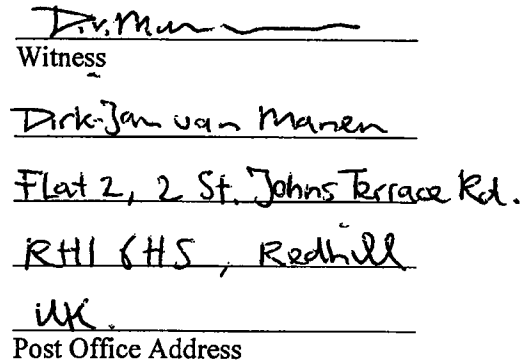 Witness
Dirk-Jan van Manen
Flat 2, 2 St. Johns Terrace Rd.
RH1 6HS, Redhill
UK.
Post Office Address